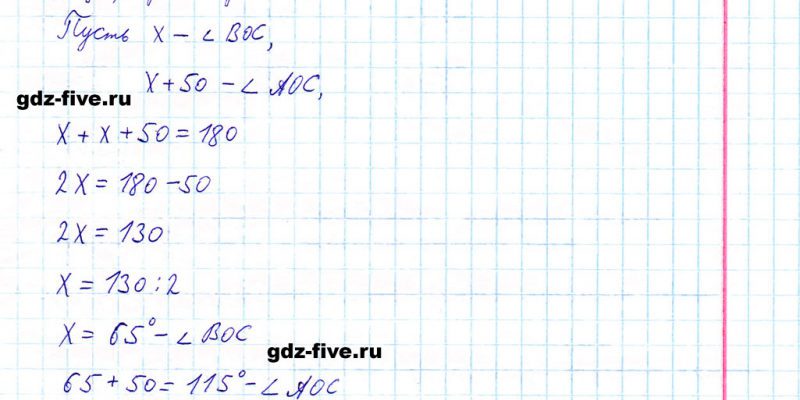 Пусть x – ∠ BOC,
x + 50 – ∠ AOC,
gdz-five.ru
x + x + 50 = 180
2x = 180 – 50
2x = 130
x = 130 : 2
x = 65° – ∠ BOC
gdz-five.ru
65 + 50 = 115° – ∠ AOC